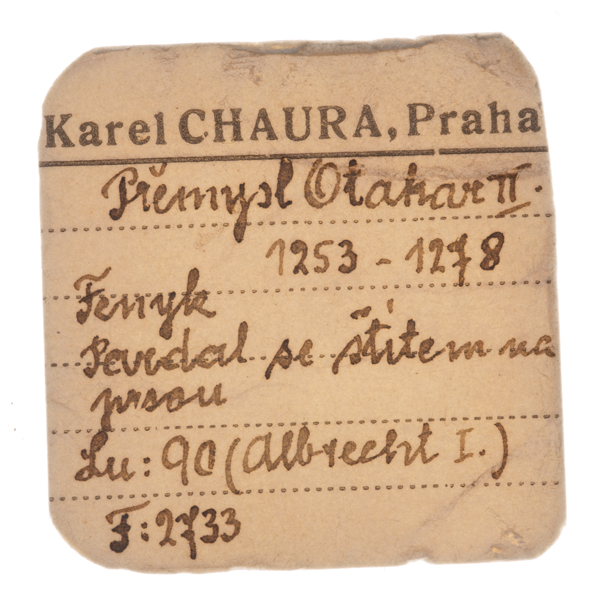 Karel CHAURA, Praha
Přemysl Otakar II.
1253 - 1278
Fenyk
Pardal se štítem na
prsou
Lu: 90 (Albrecht I.)
F: 2733